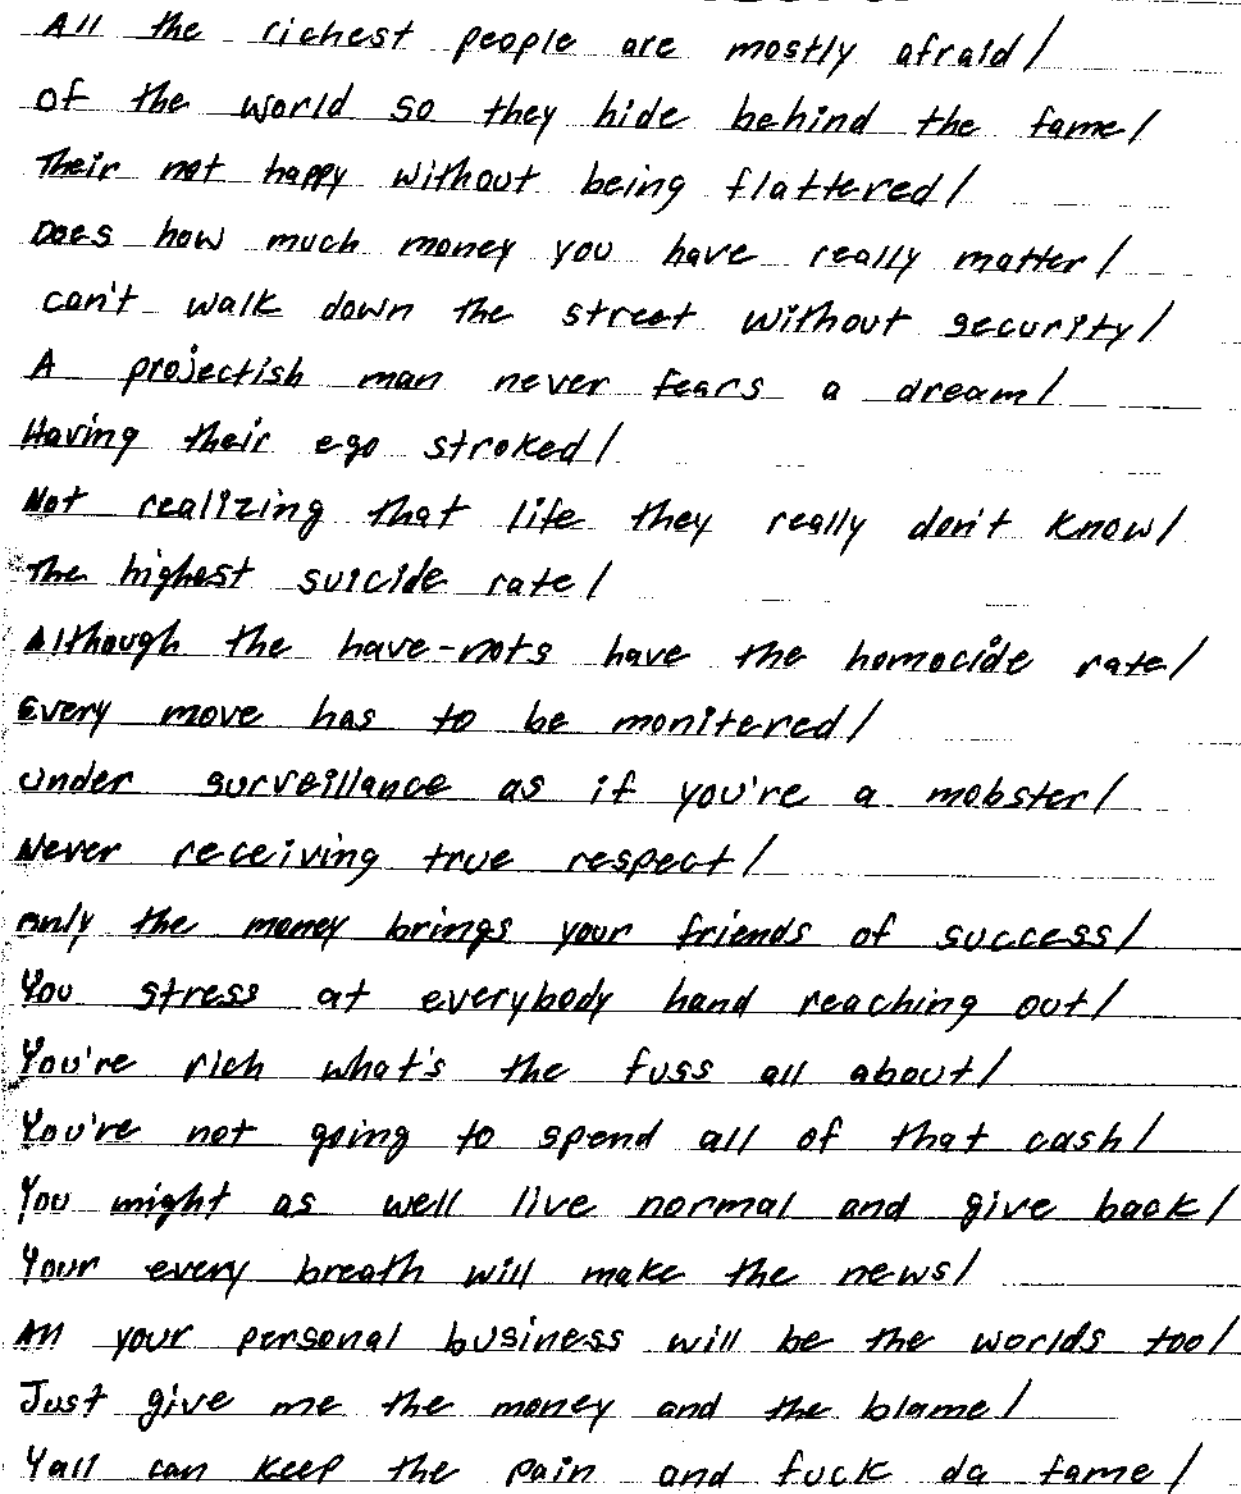 All the richest people are mostly afraid/
of the world so they hide behind the fame/
Their not happy without being flattered/
Does how much money you have really matter/
can't walk down the street without security/
A projectish man never fears a dream/
Having their ego stroked/
Not realizing that life they really don't know/
The highest suicide rate/
Although the have-nots have the homocide rate/
Every move has to be monitered/
under surveillance as if you're a mobster/
Never receiving true respect/
only the money brings your friends of success/
You stress at everybody hand reaching out/
You're rich what's the fuss all about/
You're not going to spend all of that cash/
You might as well live normal and give back/
Your every breath will make the news/
All your personal business will be the worlds too/
Just give me the money and the blame/
Yall can keep the pain and fuck da fame/